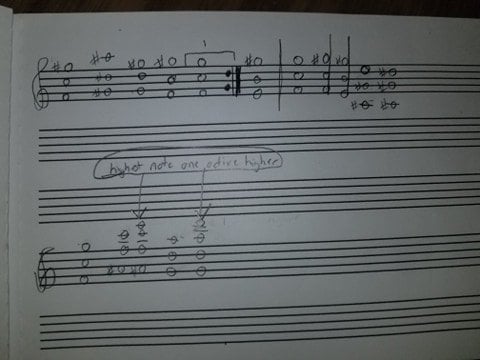 1
highest note one octive higher